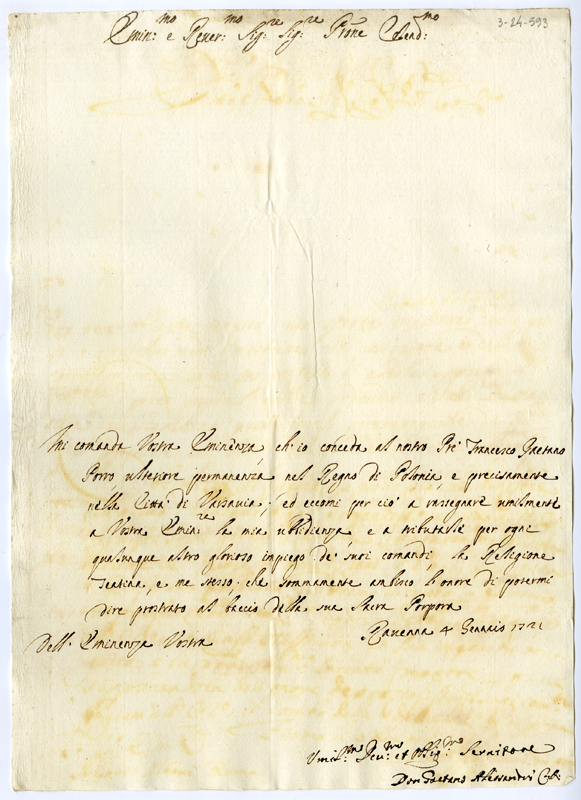 3-24-593
Emin:mo e Rever:mo Sig:re Sig:re Prōne Colend:mo
Mi comanda Vostra Eminenza, ch'io conceda al nostro Pre' Francesco Gaetano
Porro ulteriore permanenza nel Regno di Polonia, e precisamente
nella Città di Varsavia; ed eccomi per ciò a rassegnare umilmente
a Vostra Emin:za la mia ubbidienza, e a tributarle per ogni
qualunque altro glorioso impiego de' suoi comandi, la Religione
Teatina, e me stesso: che sommamente ambisco l'onore di potermi
dire prostrato al baccio della sua Sacra Porpora
Dell' Eminenza Vostra
Ravenna 4 Gennaio 1721
Umil:mo Dev:mo et Obblig:mo Servitore
Don Gaetano Alessandri